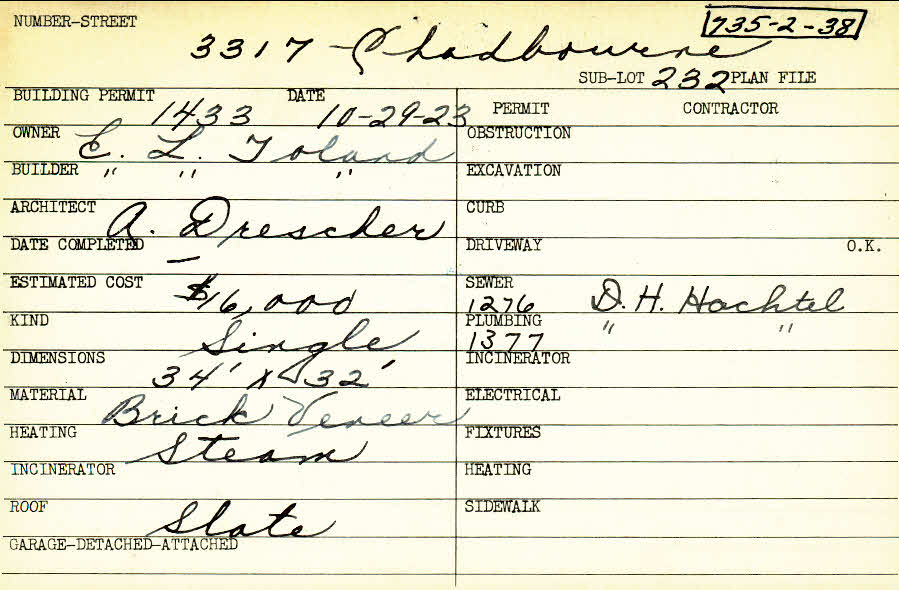 NUMBER-STREET 735-2-38
3317 Chadbourne
SUB-LOT 232 PLAN FILE
BUILDING PERMIT 1433 DATE 10-29-23
PERMIT CONTRACTOR
OWNER E. L. Toland
OBSTRUCTION
BUILDER " " "
EXCAVATION
ARCHITECT A. Drescher
CURB
DATE COMPLETED —
DRIVEWAY O.K.
ESTIMATED COST $16,000
SEWER 1276 D. H. Hachtel
KIND Single
PLUMBING 1377 " "
DIMENSIONS 34' x 32'
INCINERATOR
MATERIAL Brick Veneer
ELECTRICAL
HEATING Steam
FIXTURES
INCINERATOR
HEATING
ROOF Slate
SIDEWALK
GARAGE-DETACHED-ATTACHED